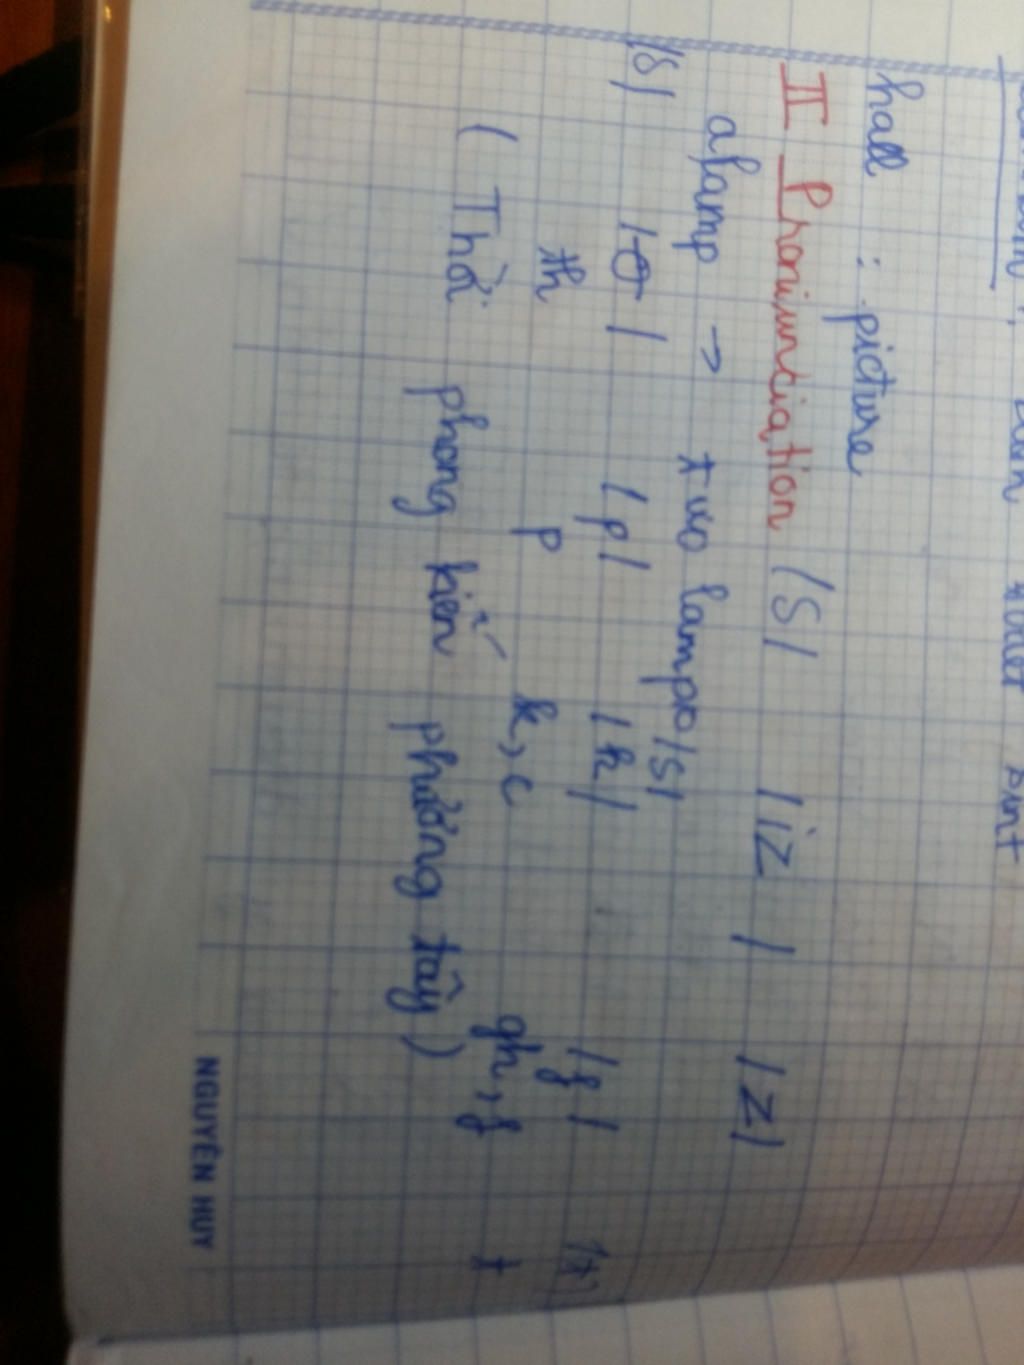 hall : picture
II Pronunciation /s/ /iz/ /z/
a lamp → two lamps /s/
/s/ /θ/ /p/ /k/ /f/ /t/
th p k, c gh, f t
( Thời phong kiến phương tây )
NGUYÊN HUY